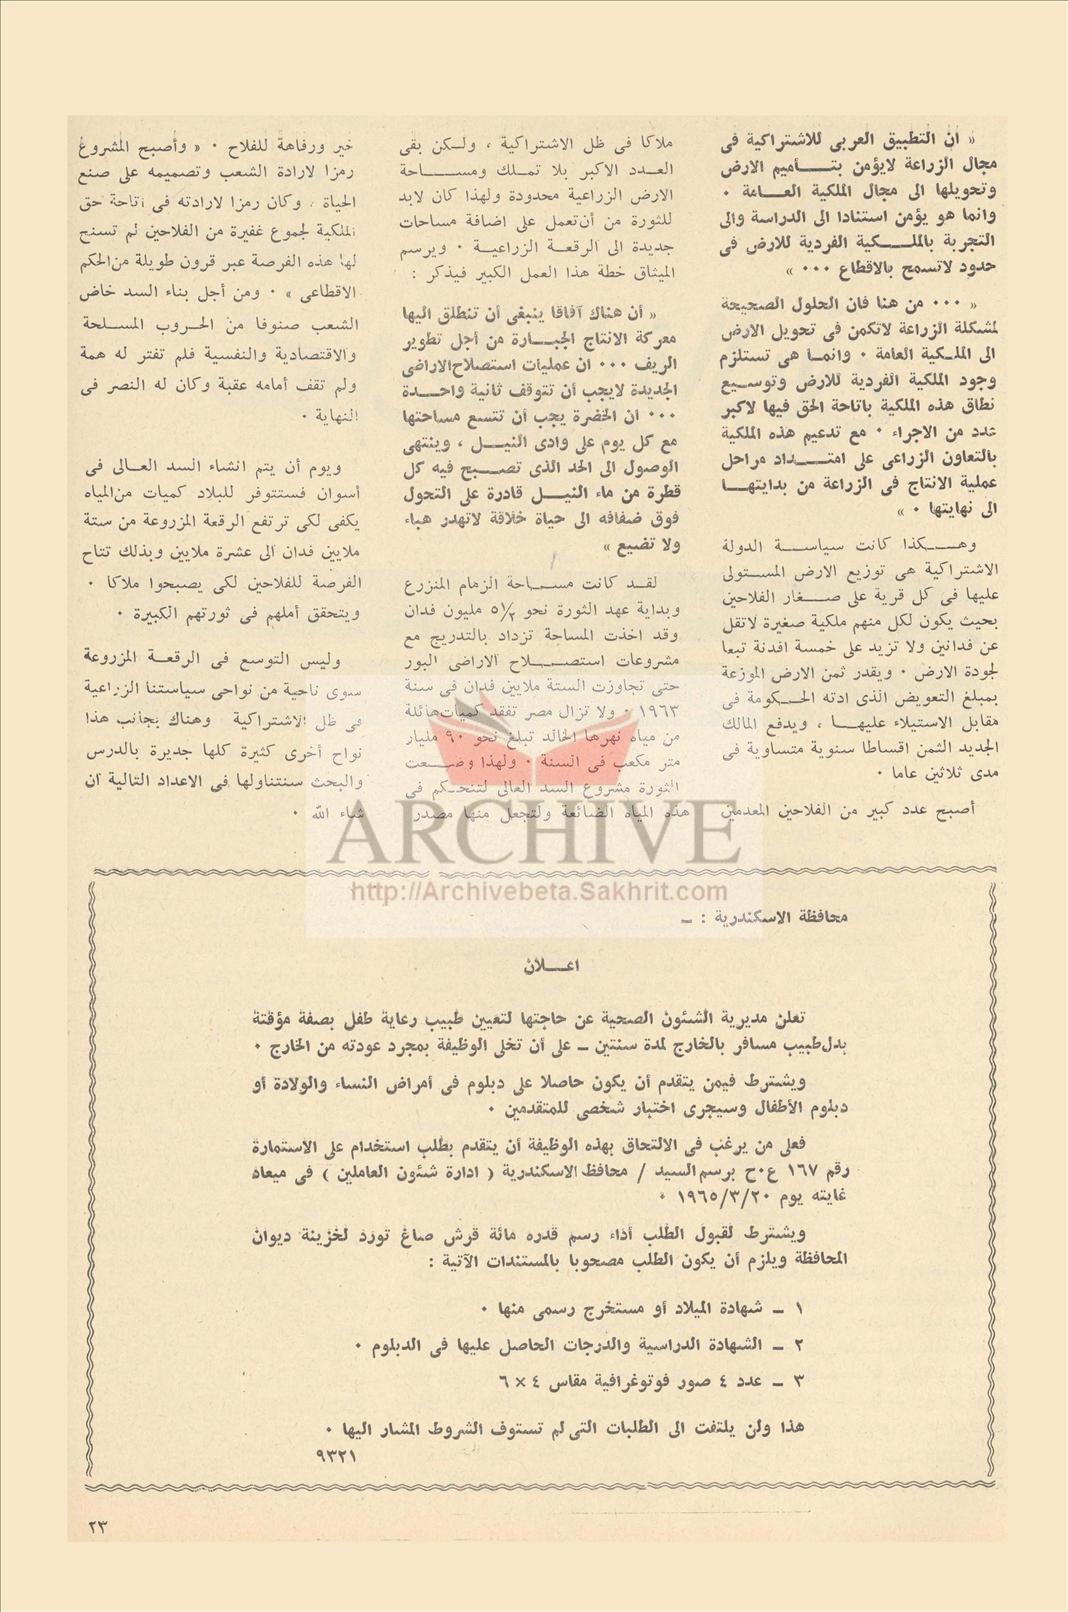 « ان التطبيق العربى للاشتراكية فى
مجال الزراعة لايؤمن بتأميم الارض
وتحويلها الى مجال الملكية العامة ٠
وانما هو يؤمن استنادا الى الدراسة والى
التجربة بالملكية الفردية للارض فى
حدود لاتسمح بالاقطاع ٠٠٠ »
« ٠٠٠ من هنا فان الحلول الصحيحة
لمشكلة الزراعة لاتكمن فى تحويل الارض
الى الملكية العامة ٠ وانما هى تستلزم
وجود الملكية الفردية للارض وتوسيع
نطاق هذه الملكية باتاحة الحق فيها لاكبر
عدد من الاجراء ٠ مع تدعيم هذه الملكية
بالتعاون الزراعى على امتداد مراحل
عملية الانتاج فى الزراعة من بدايتها
الى نهايتها ٠ »
وهكذا كانت سياسة الدولة
الاشتراكية هى توزيع الارض المستولى
عليها فى كل قرية على صغار الفلاحين
بحيث يكون لكل منهم ملكية صغيرة لاتقل
عن فدانين ولا تزيد على خمسة افدنة تبعا
لجودة الارض ٠ ويقدر ثمن الارض الموزعة
بمبلغ التعويض الذى ادته الحكومة فى
مقابل الاستيلاء عليها ، ويدفع المالك
الجديد الثمن اقساطا سنوية متساوية فى
مدى ثلاثين عاما ٠
أصبح عدد كبير من الفلاحين المعدمين
ملاكا فى ظل الاشتراكية ، ولكن بقى
العدد الاكبر بلا تملك ومساحة
الارض الزراعية محدودة ولهذا كان لابد
للثورة من أن تعمل على اضافة مساحات
جديدة الى الرقعة الزراعية ٠ ويرسم
الميثاق خطة هذا العمل الكبير فيذكر :
« أن هناك آفاقا ينبغى أن تنطلق اليها
معركة الانتاج الجبارة من أجل تطوير
الريف ٠٠٠ ان عمليات استصلاح الاراضى
الجديدة لايجب أن تتوقف ثانية واحدة
٠٠٠ ان الخضرة يجب أن تتسع مساحتها
مع كل يوم على وادى النيل ، وينتهى
الوصول الى الحد الذى تصبح فيه كل
قطرة من ماء النيل قادرة على التحول
فوق ضفافه الى حياة خلاقة لاتهدر هباء
ولا تضيع »
لقد كانت مساحة الزمام المنزرع
وبداية عهد الثورة نحو ٥١/٢ مليون فدان
وقد اخذت المساحة تزداد بالتدريج مع
مشروعات استصلاح الاراضى البور
حتى تجاوزت الستة ملايين فدان فى سنة
١٩٦٣ ٠ ولا تزال مصر تفقد كميات هائلة
من مياه نهرها الخالد تبلغ نحو ٩٠ مليار
متر مكعب فى السنة ٠ ولهذا وضعت
الثورة مشروع السد العالى لتتحكم فى
هذه المياه الضائعة ولتجعل منها مصدر
خير ورفاهة للفلاح ٠ « وأصبح المشروع
رمزا لارادة الشعب وتصميمه على صنع
الحياة ، وكان رمزا لارادته فى اتاحة حق
الملكية لجموع غفيرة من الفلاحين لم تسنح
لها هذه الفرصة عبر قرون طويلة من الحكم
الاقطاعى » ٠ ومن أجل بناء السد خاض
الشعب صنوفا من الحروب المسلحة
والاقتصادية والنفسية فلم تفتر له همة
ولم تقف أمامه عقبة وكان له النصر فى
النهاية ٠
ويوم أن يتم انشاء السد العالى فى
أسوان فستتوفر للبلاد كميات من المياه
يكفى لكى ترتفع الرقعة المزروعة من ستة
ملايين فدان الى عشرة ملايين وبذلك تتاح
الفرصة للفلاحين لكى يصبحوا ملاكا ٠
ويتحقق أملهم فى ثورتهم الكبيرة ٠
وليس التوسع فى الرقعة المزروعة
سوى ناحية من نواحى سياستنا الزراعية
فى ظل الاشتراكية وهناك بجانب هذا
نواح أخرى كثيرة كلها جديرة بالدرس
والبحث سنتناولها فى الاعداد التالية ان
شاء الله ٠
ARCHIVE
http://Archivebeta.Sakhrit.com
محافظة الاسكندرية : ــ
اعلان
تعلن مديرية الشئون الصحية عن حاجتها لتعيين طبيب رعاية طفل بصفة مؤقتة
بدل طبيب مسافر بالخارج لمدة سنتين ــ على أن تخلى الوظيفة بمجرد عودته من الخارج ٠
ويشترط فيمن يتقدم أن يكون حاصلا على دبلوم فى أمراض النساء والولادة أو
دبلوم الأطفال وسيجرى اختبار شخصى للمتقدمين ٠
فعلى من يرغب فى الالتحاق بهذه الوظيفة أن يتقدم بطلب استخدام على الاستمارة
رقم ١٦٧ ع٠ح برسم السيد / محافظ الاسكندرية ( ادارة شئون العاملين ) فى ميعاد
غايته يوم ١٩٦٥/٣/٢٠ ٠
ويشترط لقبول الطلب أداء رسم قدره مائة قرش صاغ تورد لخزينة ديوان
المحافظة ويلزم أن يكون الطلب مصحوبا بالمستندات الآتية :
١ ــ شهادة الميلاد أو مستخرج رسمى منها ٠
٢ ــ الشهادة الدراسية والدرجات الحاصل عليها فى الدبلوم ٠
٣ ــ عدد ٤ صور فوتوغرافية مقاس ٤ × ٦
هذا ولن يلتفت الى الطلبات التى لم تستوف الشروط المشار اليها ٠
٩٣٢١
٢٣